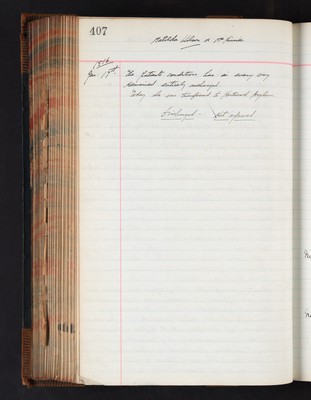 407
Matilda Wilson or McGuinness
1896
Jan 17th. The Patient's condition has in every way
remained entirely unchanged.
Today she was transferred to Montrose Asylum.
Discharged - Not improved